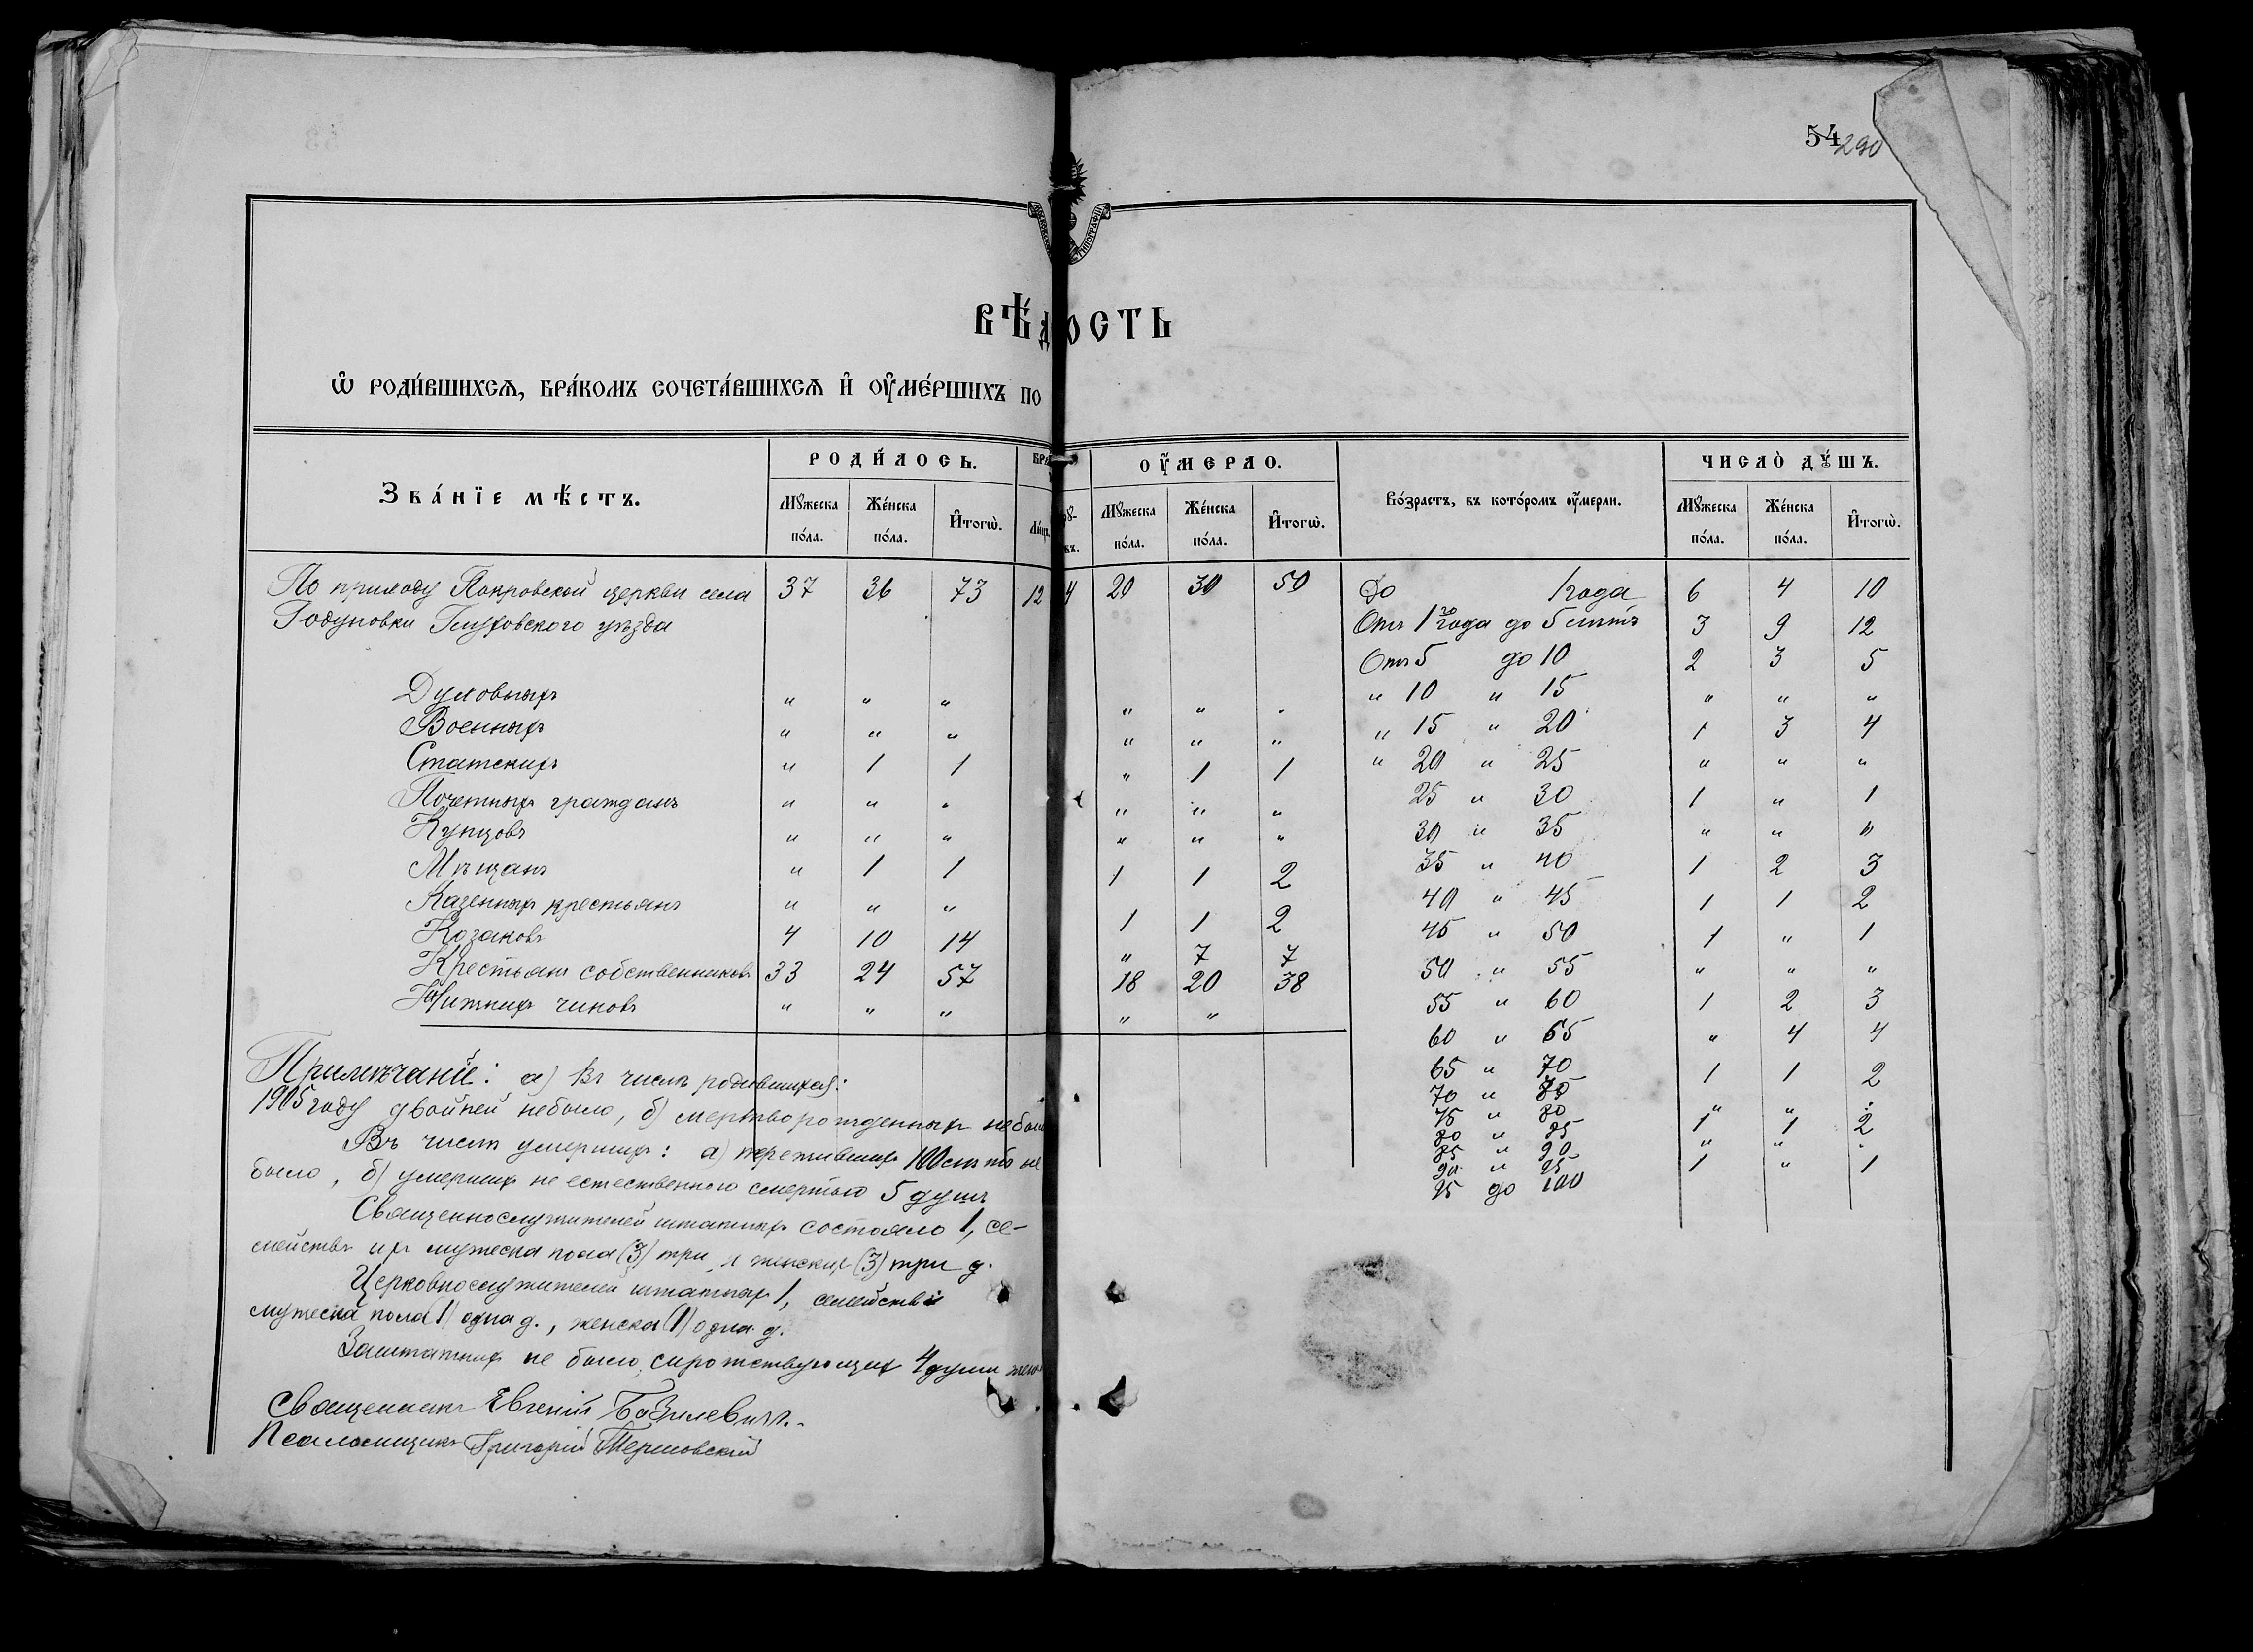 54 290
ВѢДОСТЬ
Ѡ РОДИ́ВШИХСѦ, БРА́КОМЪ СОЧЕТА́ВШИХСѦ И҆ ОУ҆МЕ́РШИХЪ ПО
ЗВА́НЇЕ МѢ́СТЪ.
РОДИ́ЛОСЬ.
ОУ҆МЕРЛО.
Во́зрастъ, въ кото́ромъ оу҆мерли.
ЧИСЛО̀ ДꙊ́ШЪ.
Мꙋ́жеска по́ла. Же́нска по́ла. И҆тогѡ̀. Мꙋ́жеска по́ла. Же́нска по́ла. И҆тогѡ̀. Мꙋ́жеска по́ла. Же́нска по́ла. И҆тогѡ̀.
По приходу Покровской церкви села 37 36 73 12 4 20 30 50 До 1 года 6 4 10
Годуновки Глуховского уѣзда От 1го года до 5 лѣтъ 3 9 12
Отъ 5 до 10 2 3 5
Духовныхъ " " " " " . " 10 " 15 " " "
Военныхъ " " " " " " " 15 " 20 1 3 4
Статскихъ " 1 1 " 1 1 " 20 " 25 " " "
Почетныхъ гражданъ " " " " " " 25 " 30 1 " 1
Купцовъ " " " " " " 30 " 35 " " "
Мѣщанъ " 1 1 1 1 2 35 " 40 1 2 3
Казенныхъ крестьянъ " " " 1 1 2 40 " 45 1 1 2
Козаковъ 4 10 14 " 7 7 45 " 50 1 " 1
Крестьянъ собственниковъ 33 24 57 18 20 38 50 " 55 " " "
Нижнихъ чиновъ " " " " " 55 " 60 1 2 3
60 " 65 " 4 4
65 " 70 1 1 2
70 " 75 " " .
75 " 80 1 1 2
80 " 85 " " .
85 " 90 1 " 1
90 " 95
95 до 100
Примѣчаніе: а) Въ числѣ родившихся:
1905 году двойней небыло, б) мертворожденныхъ небыло
Въ числѣ умершихъ: а) пережившихъ 100 лѣтъ не
было, б) умершихъ не естественною смертью 5 душъ
Священнослужителей штатныхъ состояло 1, се-
мействъ ихъ мужеска пола (3) три и женскихъ (3) три д.
Церковнослужителей штатныхъ 1, семейств
мужеска пола (1) одна д., женска (1) одна д.
Заштатныхъ не было, сиротствующихъ 4 души
Священникъ Евгеній Базилевичъ.
Псаломщикъ Григорій